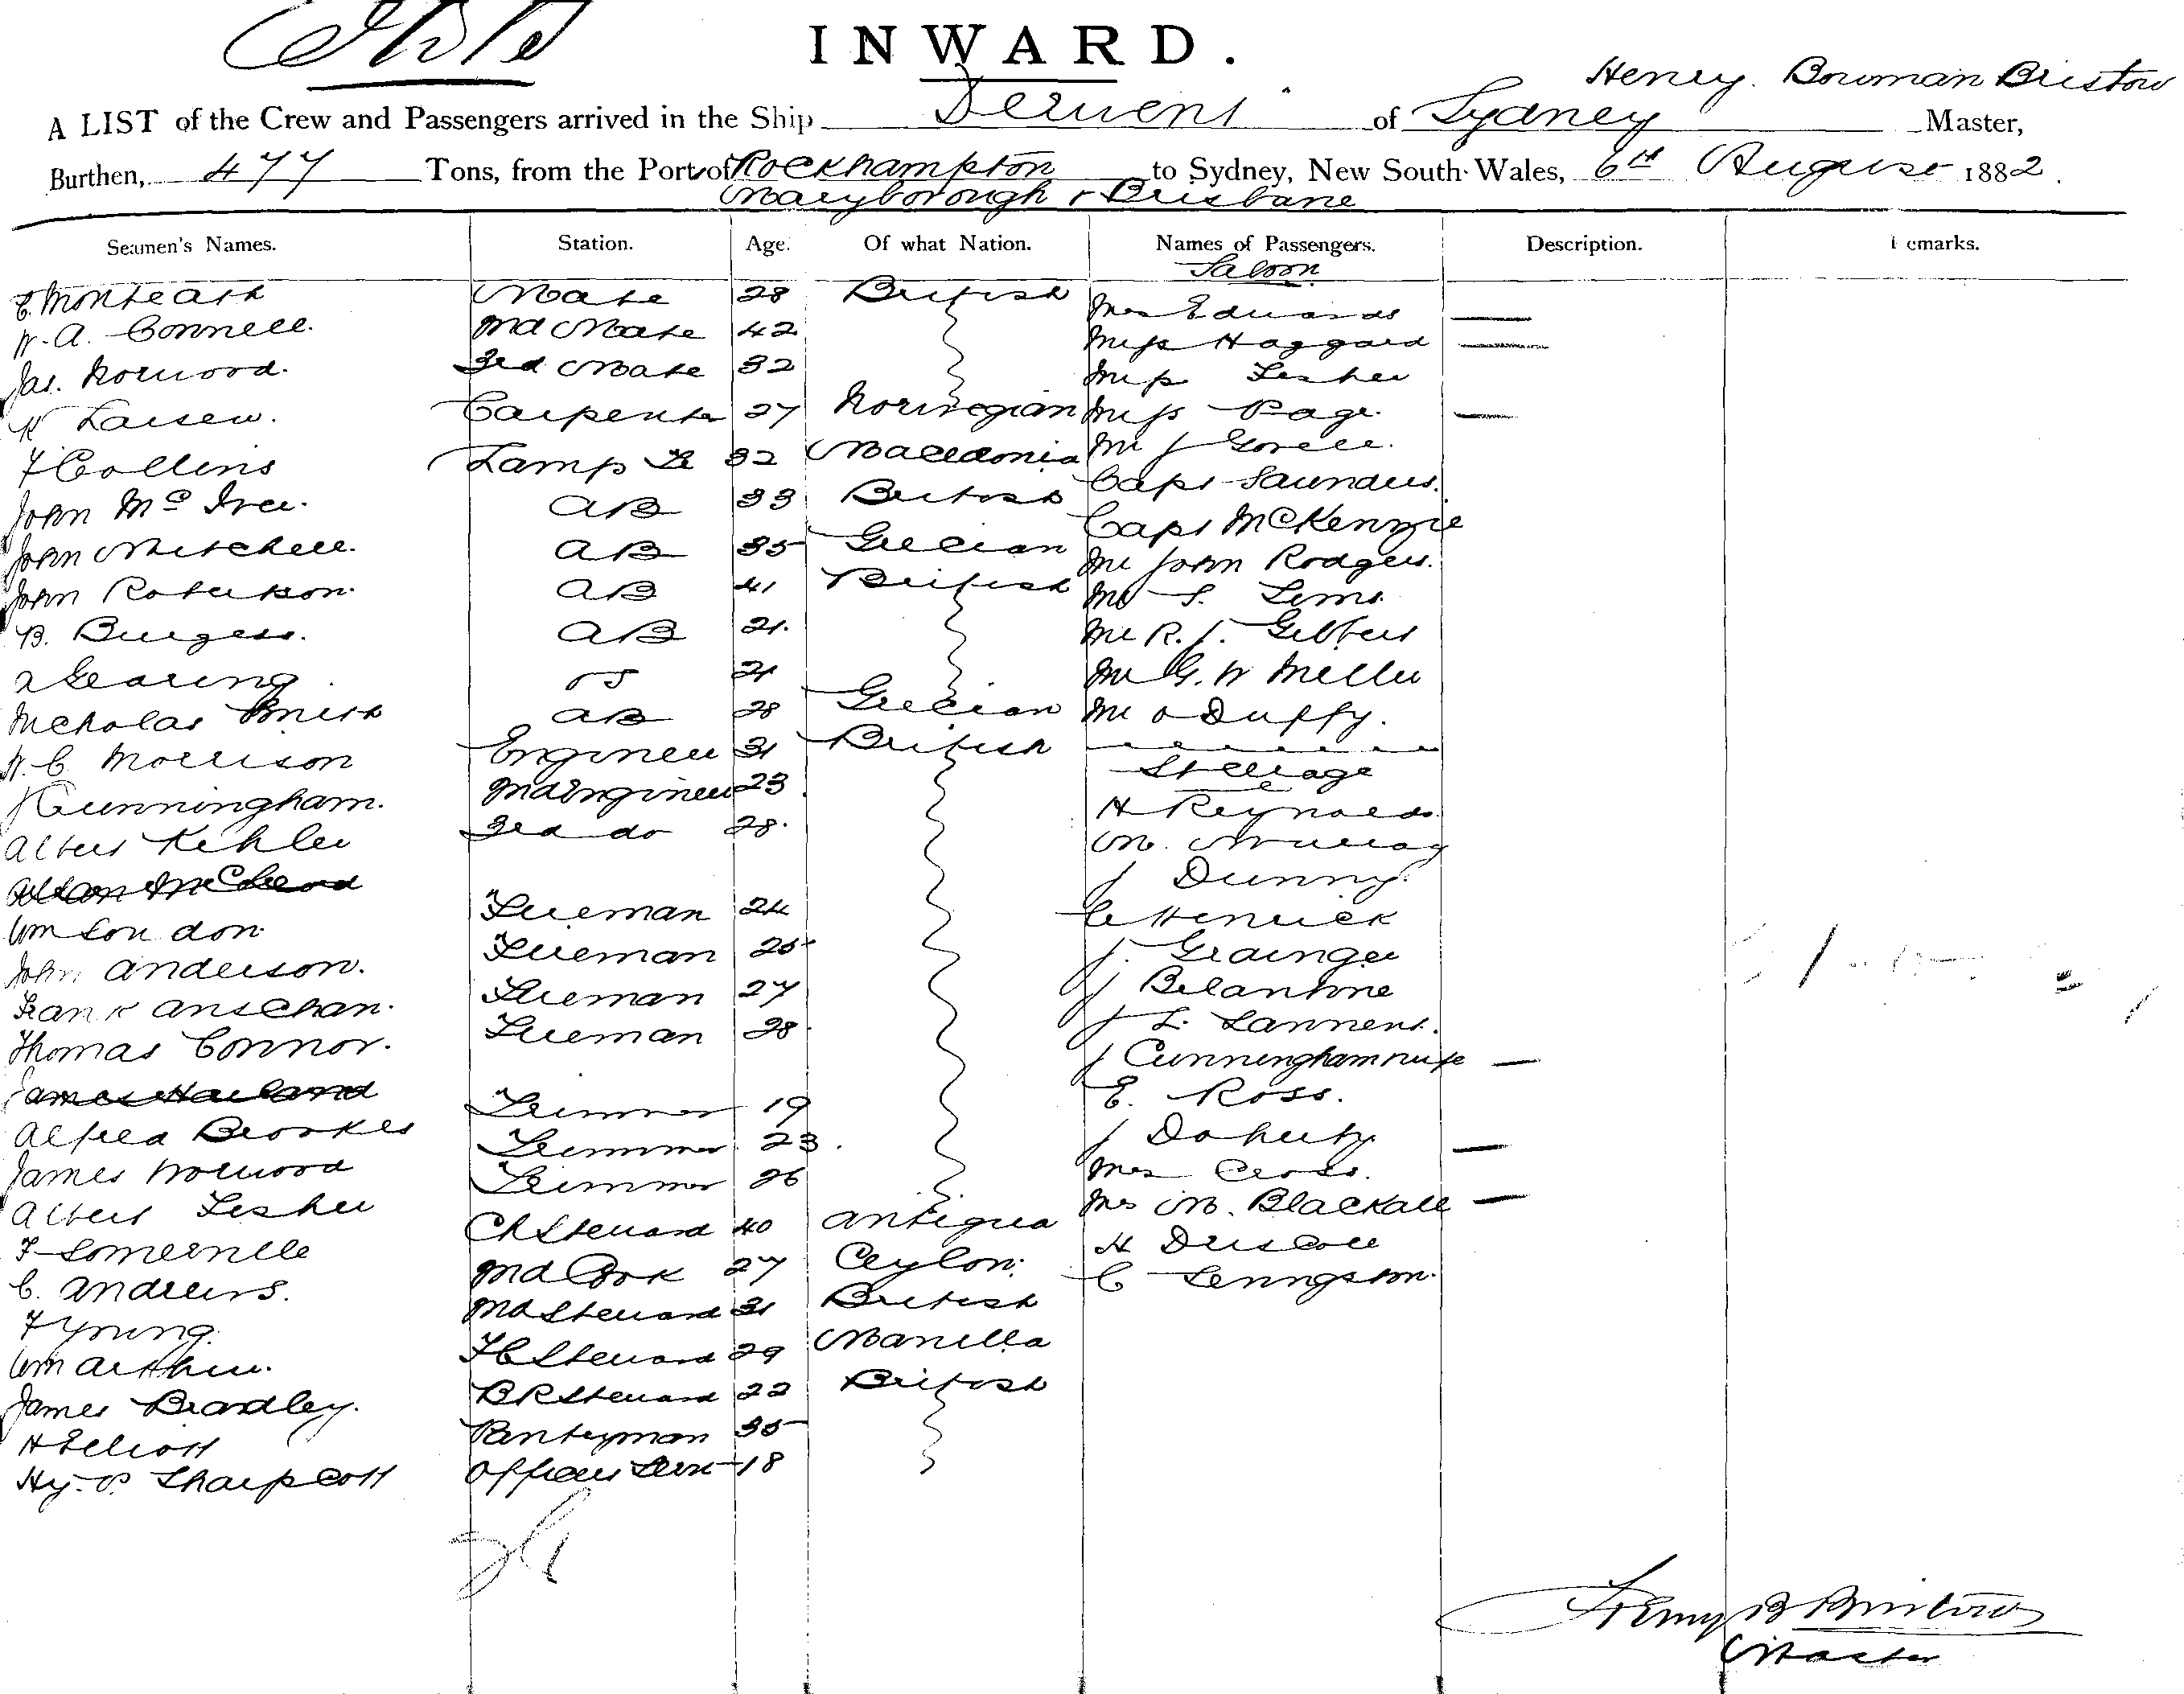 INWARD.
Henry. Bowman Bristow
A LIST of the Crew and Passengers arrived in the Ship Derwent of Sydney Master,
Burthen, 477 Tons, from the Port of Rockhampton to Sydney, New South Wales, 6th August 1882.
Maryborough & Brisbane
Seamen's Names. Station. Age. Of what Nation. Names of Passengers. Description. Remarks.
Saloon
E. Monteath Mate 28 British Mrs Edwards
W. A. Connell. 2nd Mate 42 Miss Haggard
Jas. Norwood. 3rd Mate 32 Miss Lesher
K Larsen. Carpenter 27 Norwegian Miss Page.
F Collins Lamp Tr 32 Macedonia Mr J Gorell.
John McIver. AB 33 British Capt Saunders.
John Mitchell. AB 35 Grecian Capt McKenzie
John Robertson. AB 41 British Mr John Rodgers.
B. Burgess. AB 21. Mr S. Sims
A Gearing. OS 21 Mr R. J. Gilbert
Nicholas Smith AB 28 Grecian Mr G. W Miller
W. C. Morrison Engineer 31 British Mr O Duffy.
J Cunningham. 2nd Engineer 23 Steerage
Albert Kehler 3rd do 28. H Reynolds
Allan McCleod M. Murray
Wm London Fireman 24 J Dunny.
John Anderson. Fireman 25 C Henrick
Frank Anschan. Fireman 27 J. Grainger
Thomas Connor. Fireman 28 J Belantine
James Harland J L. Lannens.
Alfred Brookes Trimmer 19 J Cunningham wife
James Norwood Trimmer 23. E. Ross.
Albert Lesher Trimmer 26 J Doherty
F Somerville Ch Steward 40 Antigua Mrs Cross.
C. Andrews. 2nd Cook 27 Ceylon. Mrs M. Blackall
F Young. 2nd Steward 31 British H Driscoll
Wm Arthur. F C Steward 29 Manilla C Lenngstom.
James Bradley. B R Steward 22 British
H Elliott Pantryman 35
Hy. P. Sharpcott Officers Servt 18
Henry B Bristow
Master